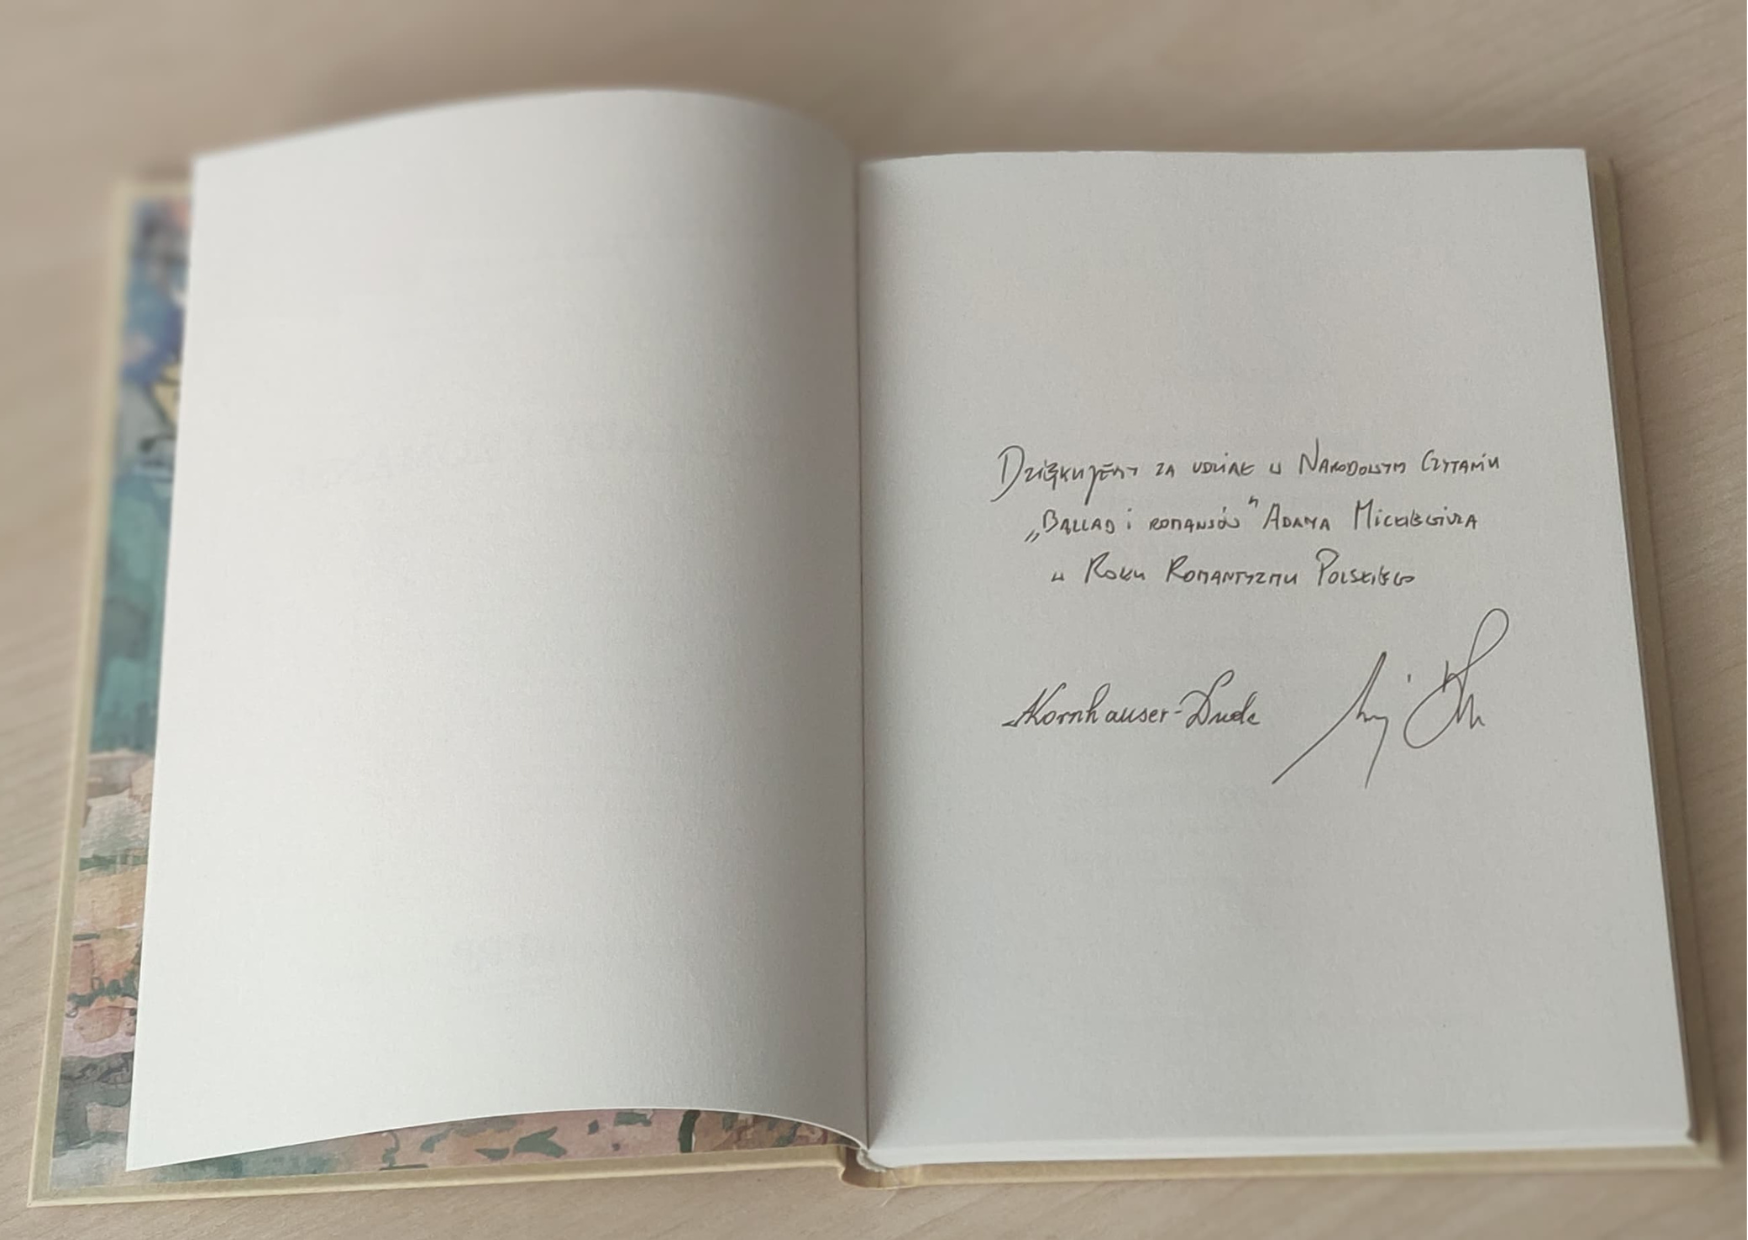 Dziękujemy za udział w Narodowym Czytaniu
„Ballad i romansów" Adama Mickiewicza
w Roku Romantyzmu Polskiego
AKornhauser-Duda